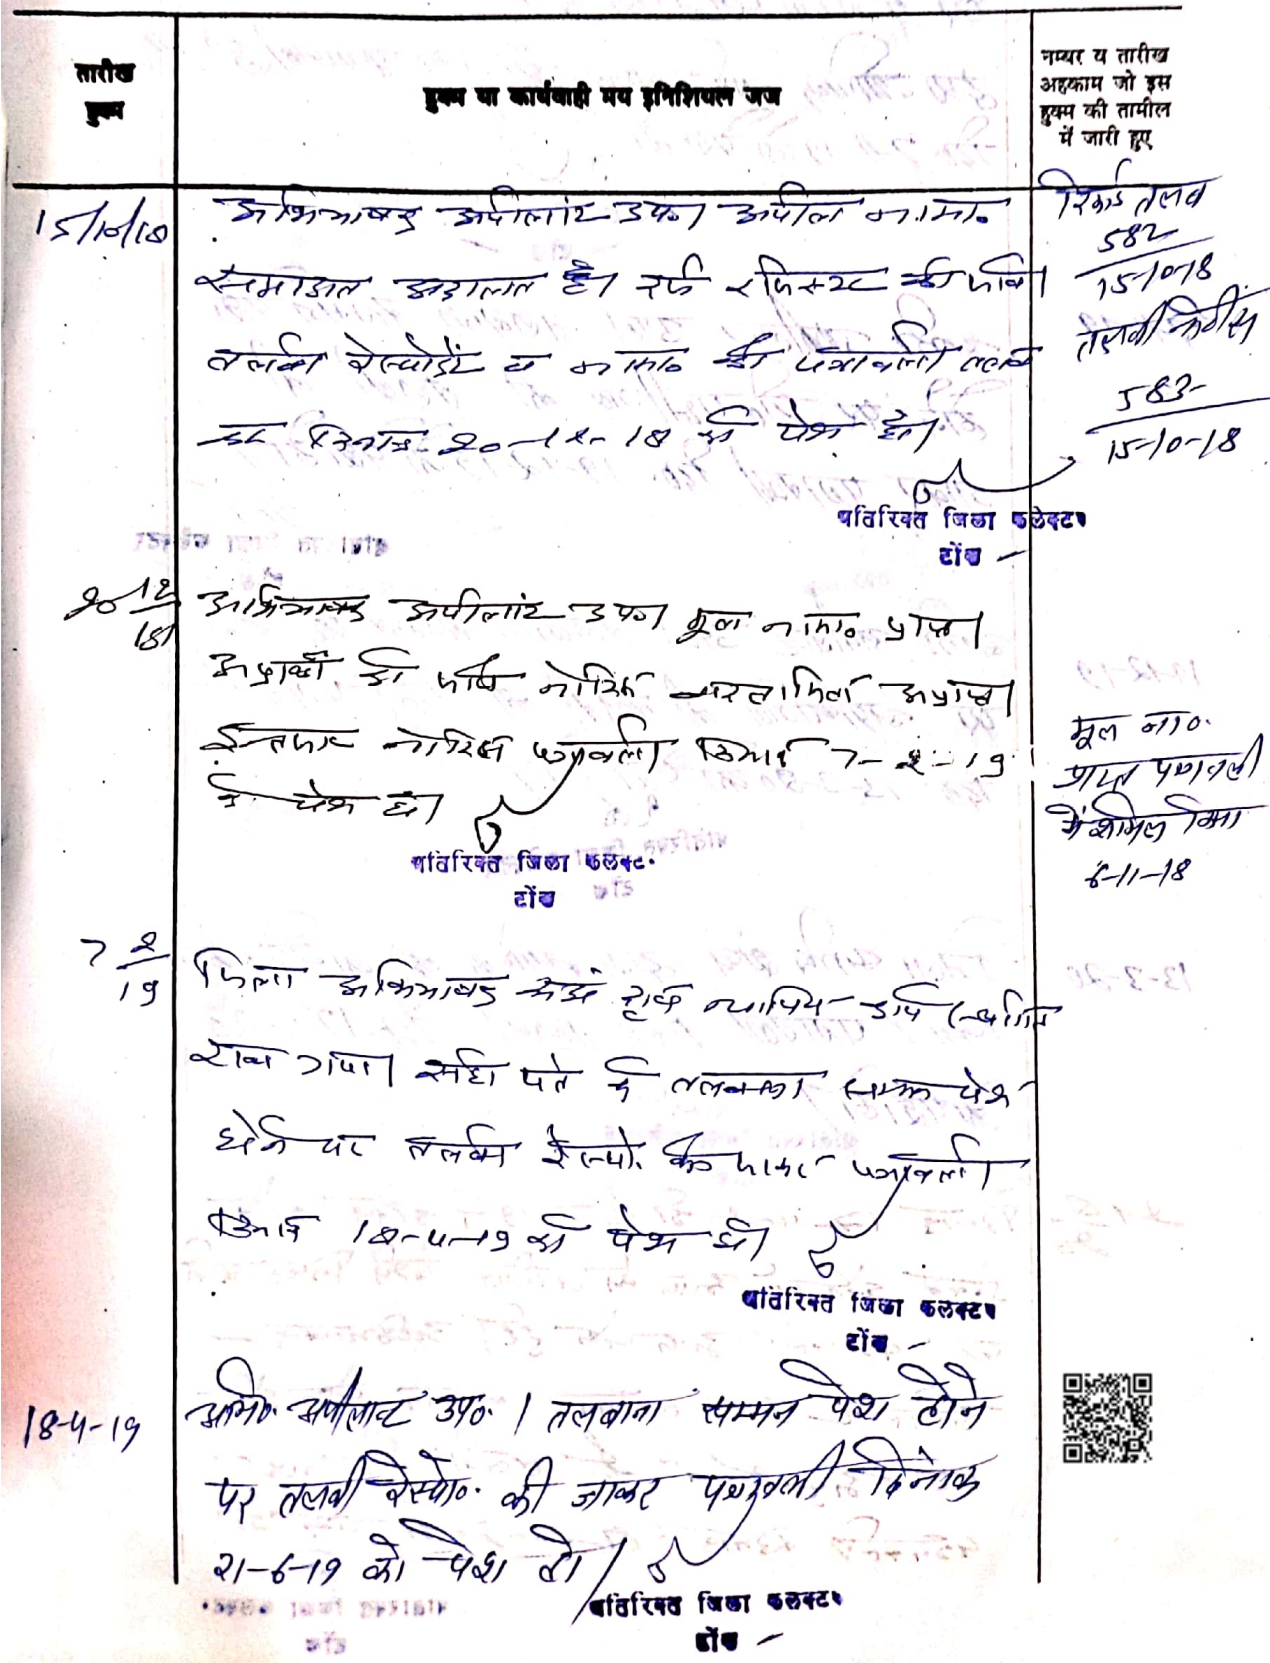 तारीख
हुक्म
हुक्म या कार्यवाही मय इनिशियल जज
नम्बर व तारीख
अहकाम जो इस
हुक्म की तामील
में जारी हुए
15/10/18
अभिभाषक अपीलांट उप0। अपील ना0मा0
अदालत है। दर्ज रजिस्टर की जावे।
तलबी रेस्पोडेंट व की पत्रावली तलब
दिनांक 20-12-18 को पेश हो।
रिकार्ड तलब
582
15-10-18
तलबी नोटिस
583
15-10-18
अतिरिक्त जिला कलेक्टर
टोंक
20 12
18
अभिभाषक अपीलांट उप0। मूल ना0क0 प्राप्त।
अप्रार्थी को जारी नोटिस अप्राप्त।
इन्तजार नोटिस पत्रावली दिनांक 7-2-19
को पेश हो।
मूल ना0
प्राप्त पत्रावली
में शामिल किया
6-11-18
अतिरिक्त जिला कलक्टर
टोंक
7 2
19
जिला अभिभाषक संघ न्यायिक कार्य स्थगित
रखा गया। सही पते के तलबाना सम्मन पेश
होने पर तलबी रेस्पो. की जाकर पत्रावली
दिनांक 18-4-19 को पेश हो।
अतिरिक्त जिला कलक्टर
टोंक
18-4-19
अभि0 अपीलांट उप0। तलबाना सम्मन पेश होने
पर तलबी रेस्पो0 की जाकर पत्रावली दिनांक
21-6-19 को पेश हो।
अतिरिक्त जिला कलक्टर
टोंक